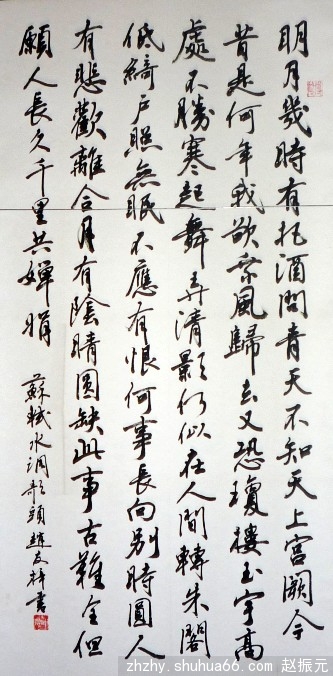 明月幾時有把酒問青天不知天上宮闕今
昔是何年我欲乘風歸去又恐瓊樓玉宇高
處不勝寒起舞弄清影何似在人間轉朱閣
低綺戶照無眠不應有恨何事長向別時圓人
有悲歡離合月有陰晴圓缺此事古難全但
願人長久千里共嬋娟 蘇軾水調歌頭趙友祥書
zhzhy.shuhua66.com 赵振元